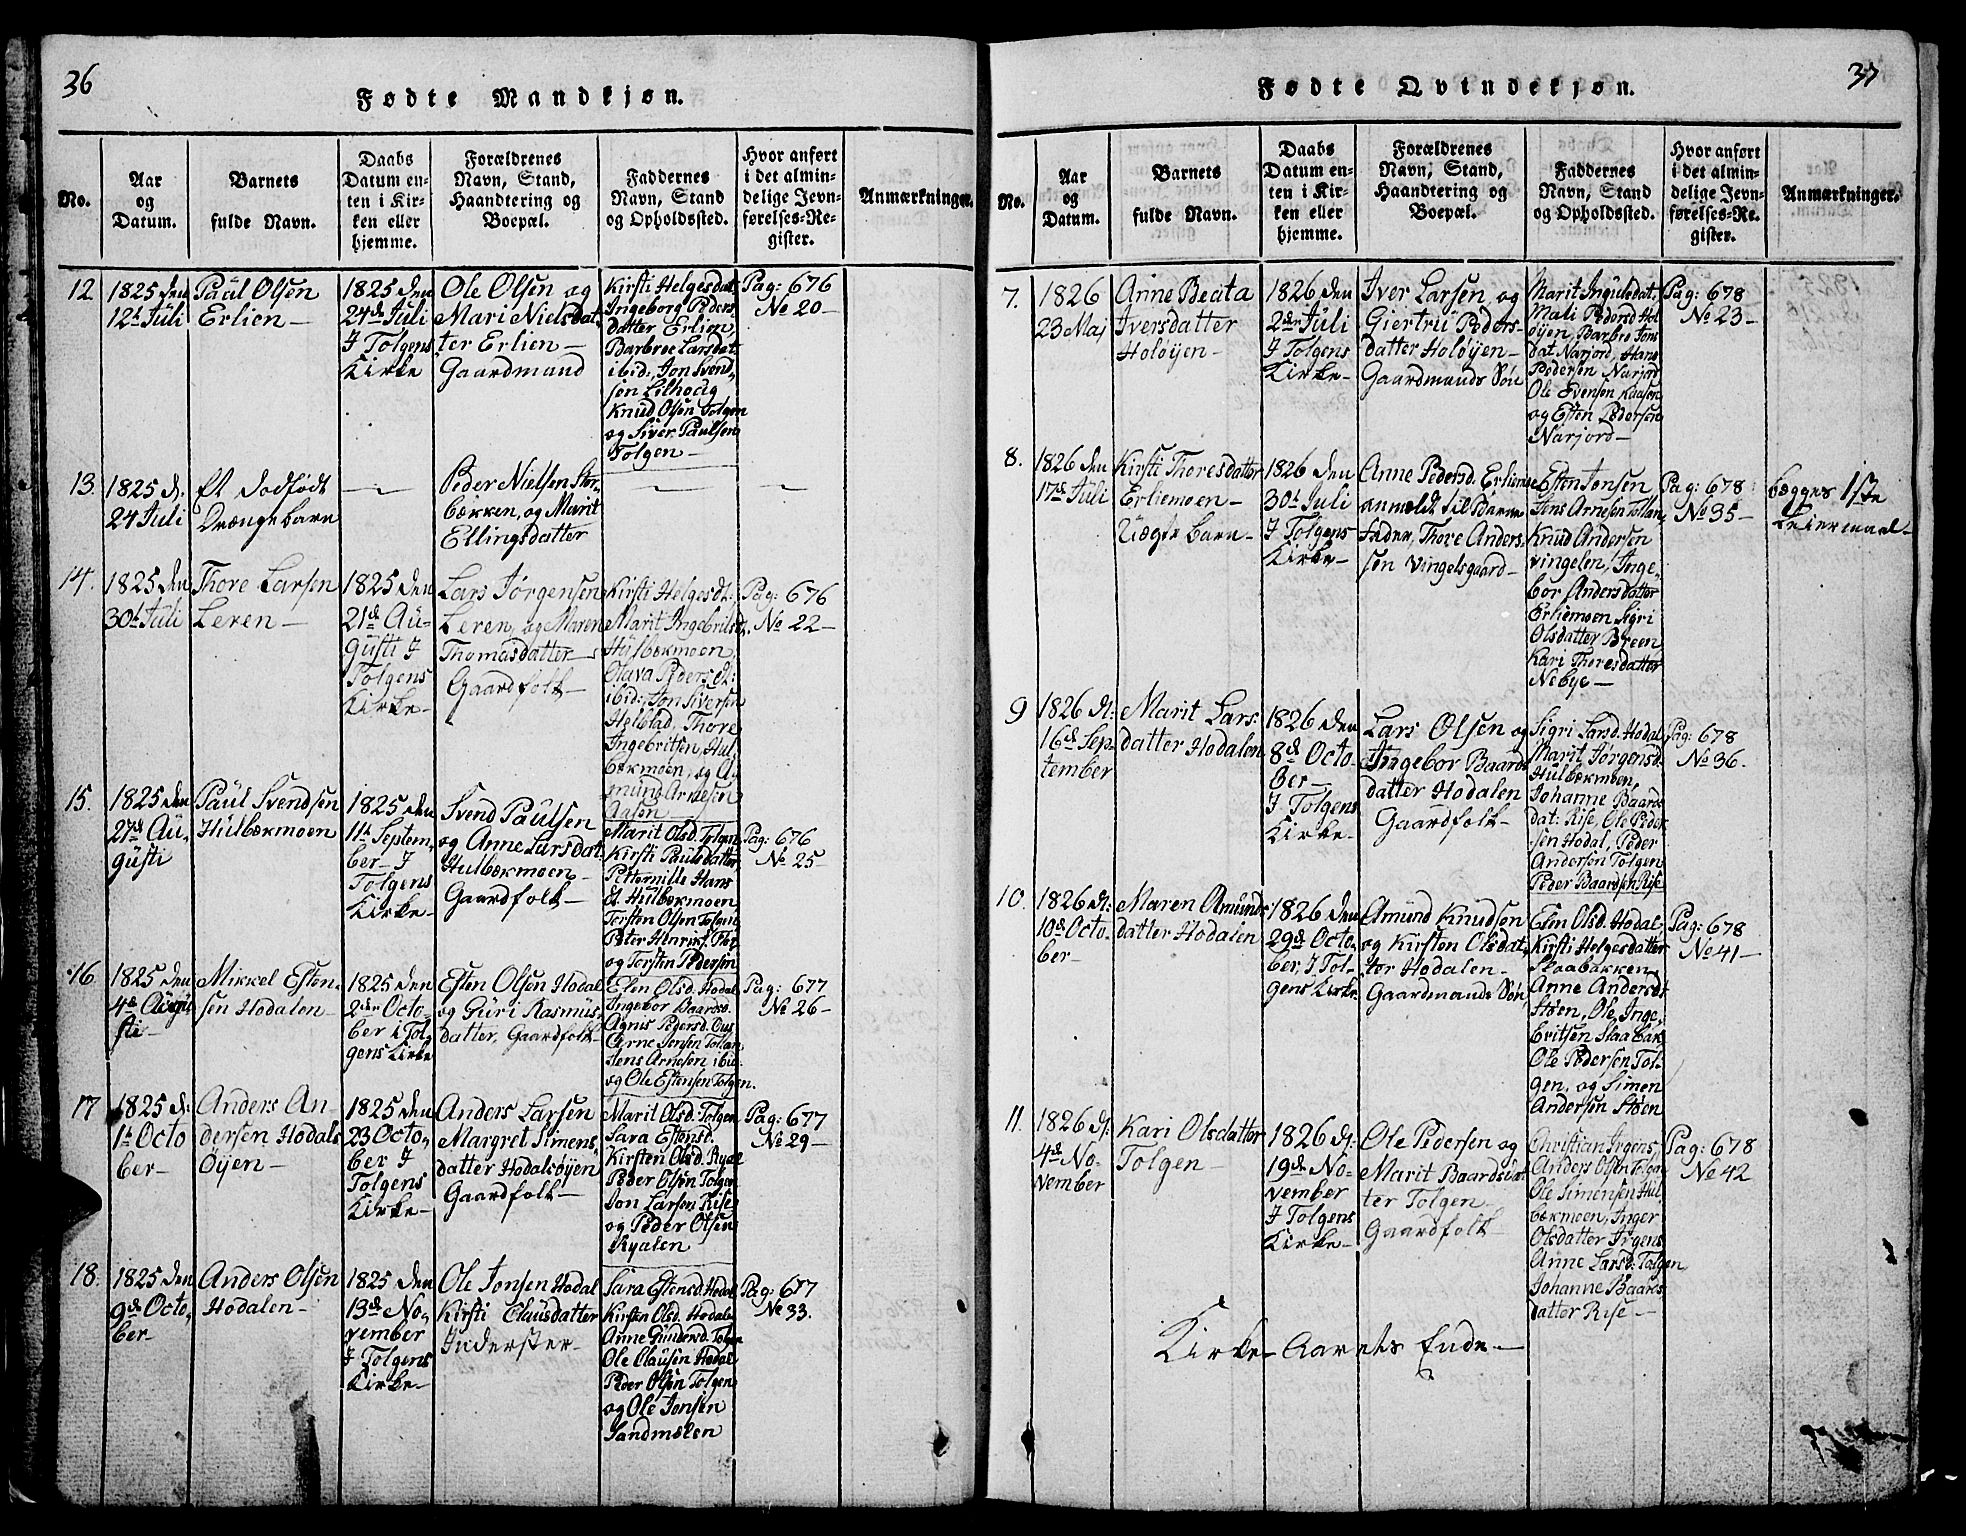 36
Fødte Mandkjøn.
No.
Aar
og
Datum.
Barnets
fulde Navn.
Daabs
Datum en-
ten i Kir-
ken eller
hjemme.
Forældrenes
Navn, Stand,
Haandtering og
Boepæl.
Faddernes
Navn, Stand
og Opholdssted.
Hvor anført
i det almin-
delige Jevn-
førelses-Re-
gister.
Anmærkninger.
12
1825 den
12t Juli
Paul Olsen
Erlien
1825 den
24de Juli
I Tolgens
Kirke
Ole Olsen og
Mari Nielsdat-
ter Erlien
Gaardmand
Kirsti Helgesdat.
Ingeborg Peders
datter Erlien,
Barbroe Larsdat
ibid:, Jon Svend-
sen Lilhoeig
Knud Olsen Tolgen
og Siver Paulsen
Tolgen
Pag: 676
No 20
13.
1825 d.
24 Juli
Et dødfødt
Drængebarn
Peder Nielsen Stor-
bækken, og Marit
Ellingsdatter
14.
1825 den
30t Juli
Thore Larsen
Leren
1825 den
21de Au-
gusti I
Tolgens
Kirke
Lars Jørgensen
Leren, og Maren
Thomasdatter
Gaardfolk
Kirsti Helgesdt:
Marit Ingebrilsd.
Hulbækmoen,
Olava Peders dt:
ibid:, Jon Siversen
Helstad, Thore
Ingebritsen Hul-
bækmoen, og A-
mund Arnesen
Aasen
Pag: 676
No 22
15.
1825 den
27de Au-
gusti
Paul Svendsen
Hulbækmoen
1825 den
11t Septem-
ber I
Tolgens
Kirke
Svend Paulsen
og Anne Larsdat
Hulbækmoen
Gaardfolk
Marit Olsd. Tolgen
Kirsti Paulsdatter
Petternille Hans
dt. Hulbækmoen
Torsten Olsen Tolgen
Peter Henriks.
og Torsten Pedersen
Pag: 676
No 25
16.
1825 den
4de Augu
sti
Mikkel Esten-
sen Hodalen
1825 den
2den Octo-
ber i Tol-
gens Kirke
Esten Olsen Hodal
og Guri Rasmus-
datter, Gaardfolk
Elen Olsd. Hodal
Ingebor Baardsd.
Agnis Pedersd.
Arne Jensen Tollan
Jens Arnesen ibid
og Ole Estensen Tolgen.
Pag: 677
No 26
17
1825 d:
1t Octo
ber
Anders An-
dersen Hodals
Øijen
1825 den
23 Octo-
ber I
Tolgens
Kirke
Anders Larsen
Margret Simens-
datter Hodalsøijen
Gaardfolk
Marit Olsd. Tolgen
Sara Estensd.
Kirsten Olsd. Ryal
Peder Olsen Tolgen
Jon Larsen Rise
og Peder Olsen
Ryalen
Pag: 677
No 29
18.
1825 den
9de Octo-
ber
Anders Olsen
Hodalen
1825 den
13de No-
vember
I Tolgens
Kirke
Ole Jonsen Hodal
Kirsti Clausdatter
Inderster
Sara Estensd. Hodal
Kirsten Olsd. Hodale
Anne Gundersd. Tolge
Ole Clausen Hodal
Peder Olsen Tolgen
og Ole Jonsen
Sandmælen
Pag: 677
No 33.
37
Fødte Qvindekjøn.
No.
Aar
og
Datum.
Barnets
fulde Navn.
Daabs
Datum en-
ten i Kir-
ken eller
hjemme.
Forældrenes
Navn, Stand,
Haandtering og
Boepæl.
Faddernes
Navn, Stand
og Opholdssted.
Hvor anført
i det almin-
delige Jevn-
førelses-Re-
gister.
Anmærkninger.
7.
1826
23 Maj
Anne Beata
Iversdatter
Holøijen
1826 den
2den Juli
I Tolgens
Kirke
Iver Larsen, og
Giertru Peders-
datter Holøijen
Gaardmands Søn
Marit Ingulsdat.
Mali Pedersd Hol
øijen, Barbro Jons
dat. Narjord, Hans
Pedersen Narjord
Ole Evensen Kaasen
og Esten Pedersen
Narjord
Pag: 678
No 23
8.
1826 den
17de Juli
Kirsti Thoresdatter
Erliemoen
Uægte barn
1826 den
30t Juli
I Tolgens
Kirke
Anne Pedersd. Erliemoe
anmeldt til Barne
fader, Thore Anders-
sen Vingelsgaard
Esten Jonsen
Jens Arnesen Tollan,
Knud Andersen
Vingelen, Inge-
bor Andersdatter
Erliemoen Sigri
Olsdatter Breen
Kari Thoresdatter
Nebye
Pag: 678
No 35
begges 1ste
Leiermaal
9
1826 d:
16de Sep-
tember
Marit Lars-
datter Hodalen
1826 den
8de Octo
ber
I Tolgens
Kirke
Lars Olsen og
Ingebor Baards
datter Hodalen
Gaardfolk
Sigri Larsd. Hodal
Marit Jørgensd.
Hulbækmoen,
Johanne Baards
dat: Rise, Ole Peder
sen Hodal, Peder
Andersen Tolgen
Peder Baardsen Rise
Pag: 678
No 36.
10.
1826 d:
10de Octo-
ber
Maren Amunds
datter Hodalen
1826 den
29de Octo-
ber, I Tol-
gens Kirke
Amund Knudsen
og Kirsten Olsdat-
ter Hodalen
Gaardmands Søn
Elen Olsd. Hodal,
Kirsti Helgesdatter
Staabækken,
Anne Andersdt
Støen, Ole, Inge-
britsen Staabæk
Ole Pedersen Tol-
gen, og Simen
Andersen Støen
Pag: 678
No 41
11.
1826 d:
4de No-
vember
Kari Olsdatter
Tolgen
1826 d:
19de No-
vember
I Tolgens
Kirke
Ole Pedersen og
Marit Baardsdat
ter Tolgen
Gaardfolk
Christian Irgens,
Anders Olsen Tolgen
Ole Simensen Hul
bækmoen, Inger
Olsdatter Irgens
Anne Larsd. Tolgen
Johanne Baards
datter Rise
Pag: 678
No 42
Kirke Aarets Ende